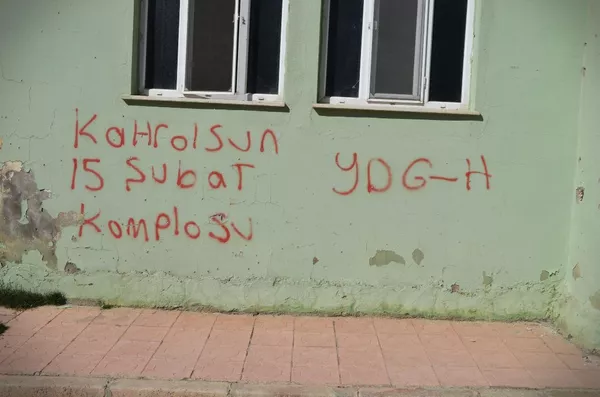 Kahrolsun
15 Şubat
Komplosu
YDG-H